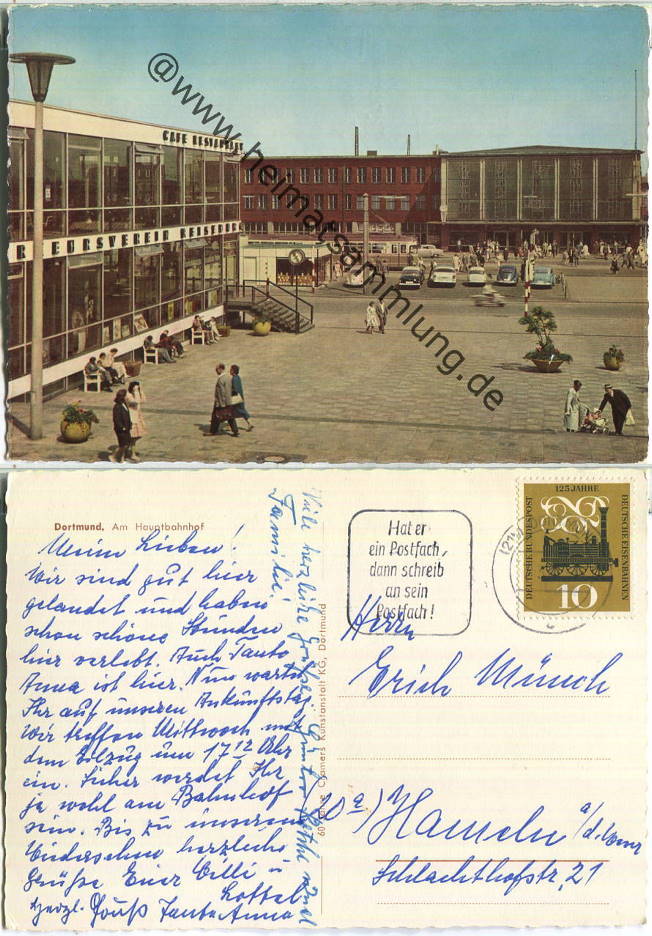 CAFE RESTAURANT
R EHRSVEREIN REISEBÜR
@www.heimatsammlung.de
Dortmund. Am Hauptbahnhof
Meine Lieben!
Wir sind gut hier
gelandet und haben
schon schöne Stunden
hier verlebt. Auch Tante
Anna ist hier. Nun wartet
Ihr auf unseren Ankunftstag
Wir treffen Mittwoch mit
dem Eilzug um 17 12 Uhr
ein. Sicher werdet Ihr
ja wohl am Bahnhof
sein. Bis zu unserem
Wiedersehen herzliche
Grüße Euer Willi u
Lottel
Herzl. Gruß Tante Anna
Viele herzliche Grüße
Familie
60 Jahre Cramers Kunstanstalt KG, Dortmund
Hat er
ein Postfach,
dann schreib
an sein
Postfach!
125 JAHRE
DEUTSCHE EISENBAHNEN
DEUTSCHE BUNDESPOST
10
Herrn
Erich Münch
Hameln a/d. Weser
Schlachthofstr. 21